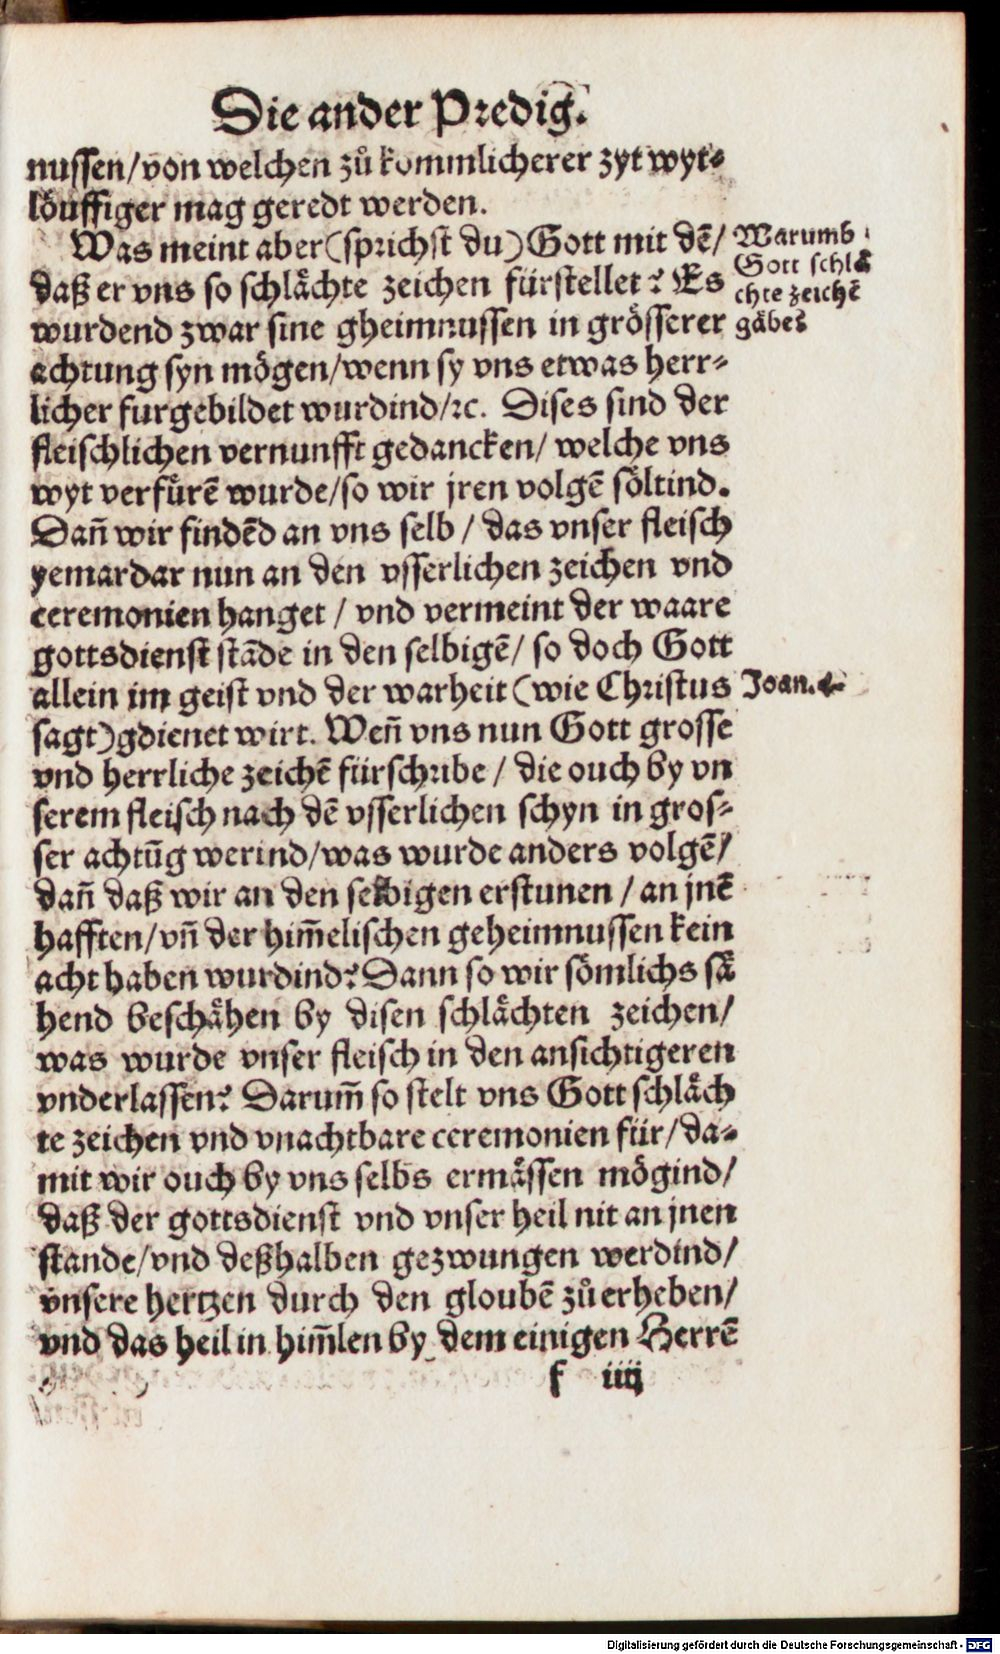 Die ander Predig.
nussen/von welchen zů kommlicherer zyt wyt-
löuffiger mag geredt werden.
Was meint aber (sprichst du) Gott mit dẽ/
daß er vns so schlächte zeichen fürstellet? Es
wurdend zwar sine gheimnussen in grösserer
achtung syn mögen/wenn sy vns etwas herr-
licher furgebildet wurdind/ꝛc. Dises sind der
fleischlichen vernunfft gedancken/ welche vns
wyt verfürẽ wurde/so wir jren volgẽ söltind.
Dañ wir findẽd an vns selb / das vnser fleisch
yemardar nun an den vsserlichen zeichen vnd
ceremonien hanget / vnd vermeint der waare
gottsdienst stãde in den selbigẽ/ so doch Gott
allein im geist vnd der warheit (wie Christus
sagt) gdienet wirt. Weñ vns nun Gott grosse
vnd herrliche zeichẽ fürschribe / die ouch by vn
serem fleisch nach dẽ vsserlichen schyn in gros-
ser achtũg werind/was wurde anders volgẽ/
dañ daß wir an den selbigen erstunen / an jnẽ
hafften/vñ der him̃elischen geheimnussen kein
acht haben wurdind? Dann so wir sömlichs sä
hend beschähen by disen schlächten zeichen/
was wurde vnser fleisch in den ansichtigeren
vnderlassen? Darum̃ so stelt vns Gott schläch
te zeichen vnd vnachtbare ceremonien für/da-
mit wir ouch by vns selbs ermässen mögind/
daß der gottsdienst vnd vnser heil nit an jnen
stande/vnd deßhalben gezwungen werdind/
vnsere hertzen durch den gloubẽ zů erheben/
vnd das heil in him̃len by dem einigen Herrẽ
f iiij
Warumb
Gott schlä
chte zeichẽ
gäbe?
Joan. 4.
Digitalisierung gefördert durch die Deutsche Forschungsgemeinschaft - DFG